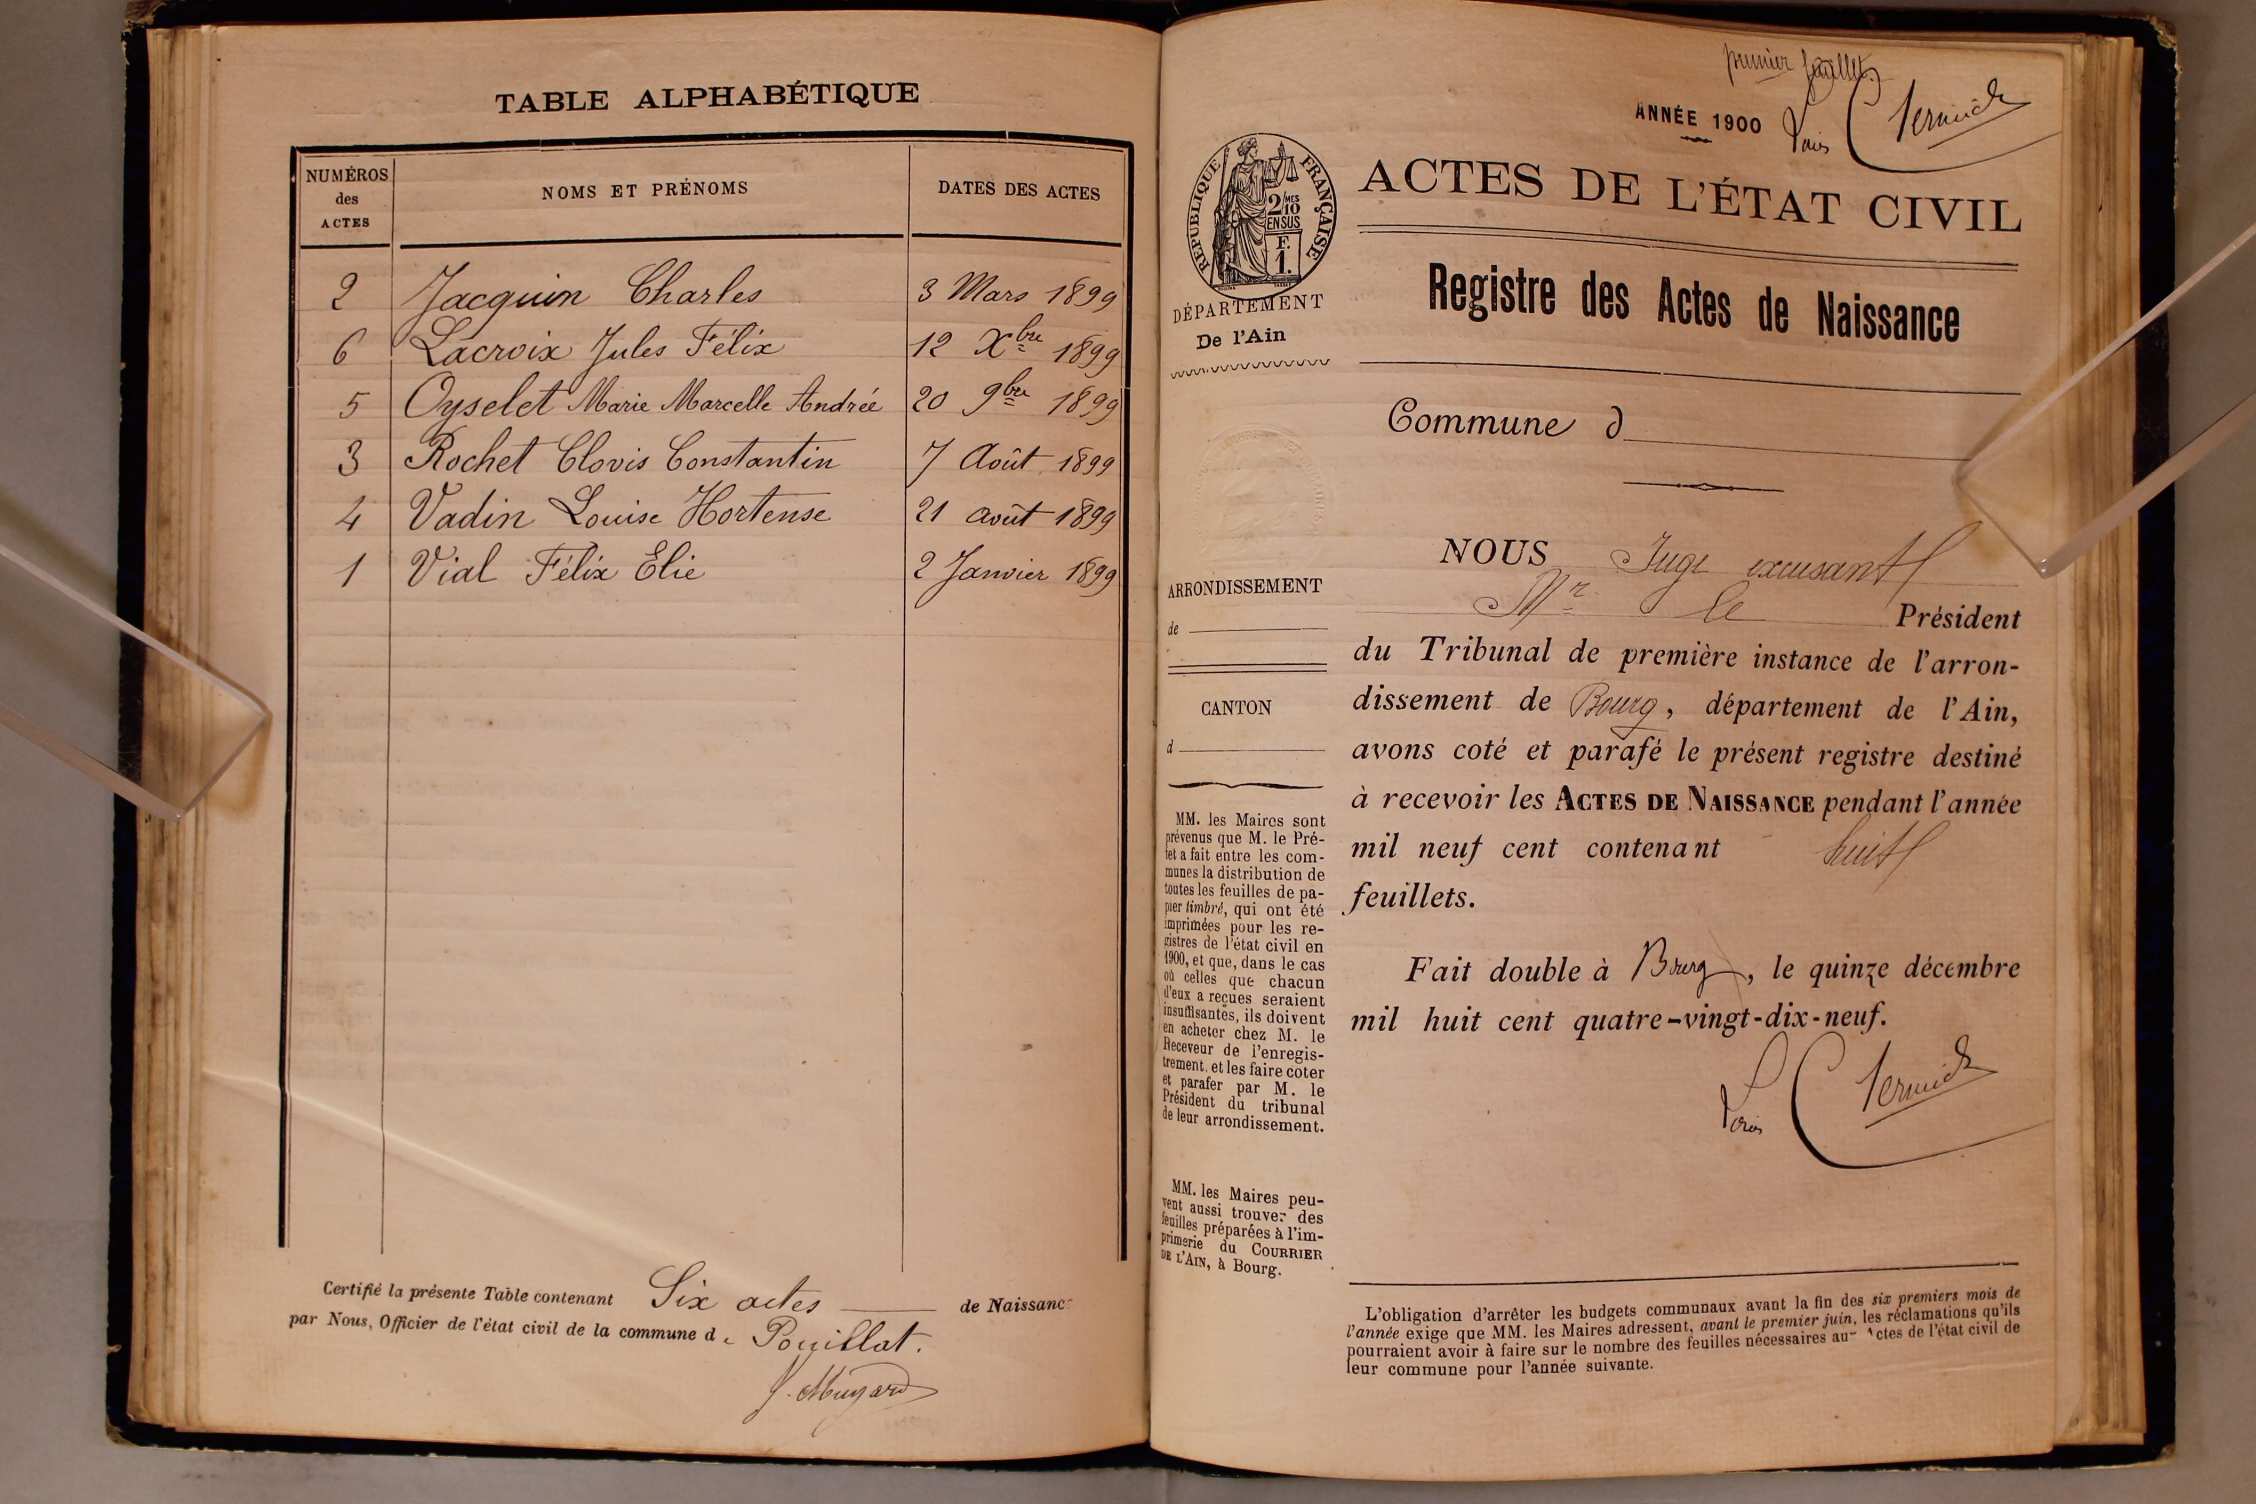 TABLE ALPHABÉTIQUE
NUMÉROS des ACTES
NOMS ET PRÉNOMS
DATES DES ACTES
2 Jacquin Charles 3 Mars 1899
6 Lacroix Jules Félix 12 Xbre 1899
5 Oyselet Marie Marcelle Andrée 20 9bre 1899
3 Rochet Clovis Constantin 7 Août 1899
4 Vadin Louise Hortense 21 août 1899
1 Vial Félix Elie 2 Janvier 1899
Certifié la présente Table contenant Six actes de Naissance
par Nous, Officier de l'état civil de la commune de Pouillat.
premier feuillet
ANNÉE 1900
RÉPUBLIQUE FRANÇAISE
2/10 MES
EN SUS
F.
1.
DÉPARTEMENT
De l'Ain
ACTES DE L'ÉTAT CIVIL
Registre des Actes de Naissance
Commune d
ARRONDISSEMENT
de
CANTON
d
MM. les Maires sont
prévenus que M. le Pré-
fet a fait entre les com-
munes la distribution de
toutes les feuilles de pa-
pier timbré, qui ont été
imprimées pour les re-
gistres de l'état civil en
1900, et que, dans le cas
où celles que chacun
d'eux a reçues seraient
insuffisantes, ils doivent
en acheter chez M. le
Receveur de l'enregis-
trement, et les faire coter
et parafer par M. le
Président du tribunal
de leur arrondissement.
MM. les Maires peu-
vent aussi trouver des
feuilles préparées à l'im-
primerie du COURRIER
DE L'AIN, à Bourg.
NOUS Juge excusant
Mr le Président
du Tribunal de première instance de l'arron-
dissement de Bourg, département de l'Ain,
avons coté et parafé le présent registre destiné
à recevoir les ACTES DE NAISSANCE pendant l'année
mil neuf cent contenant huit
feuillets.
Fait double à Bourg, le quinze décembre
mil huit cent quatre-vingt-dix-neuf.
L'obligation d'arrêter les budgets communaux avant la fin des six premiers mois de
l'année exige que MM. les Maires adressent, avant le premier juin, les réclamations qu'ils
pourraient avoir à faire sur le nombre des feuilles nécessaires aux Actes de l'état civil de
leur commune pour l'année suivante.